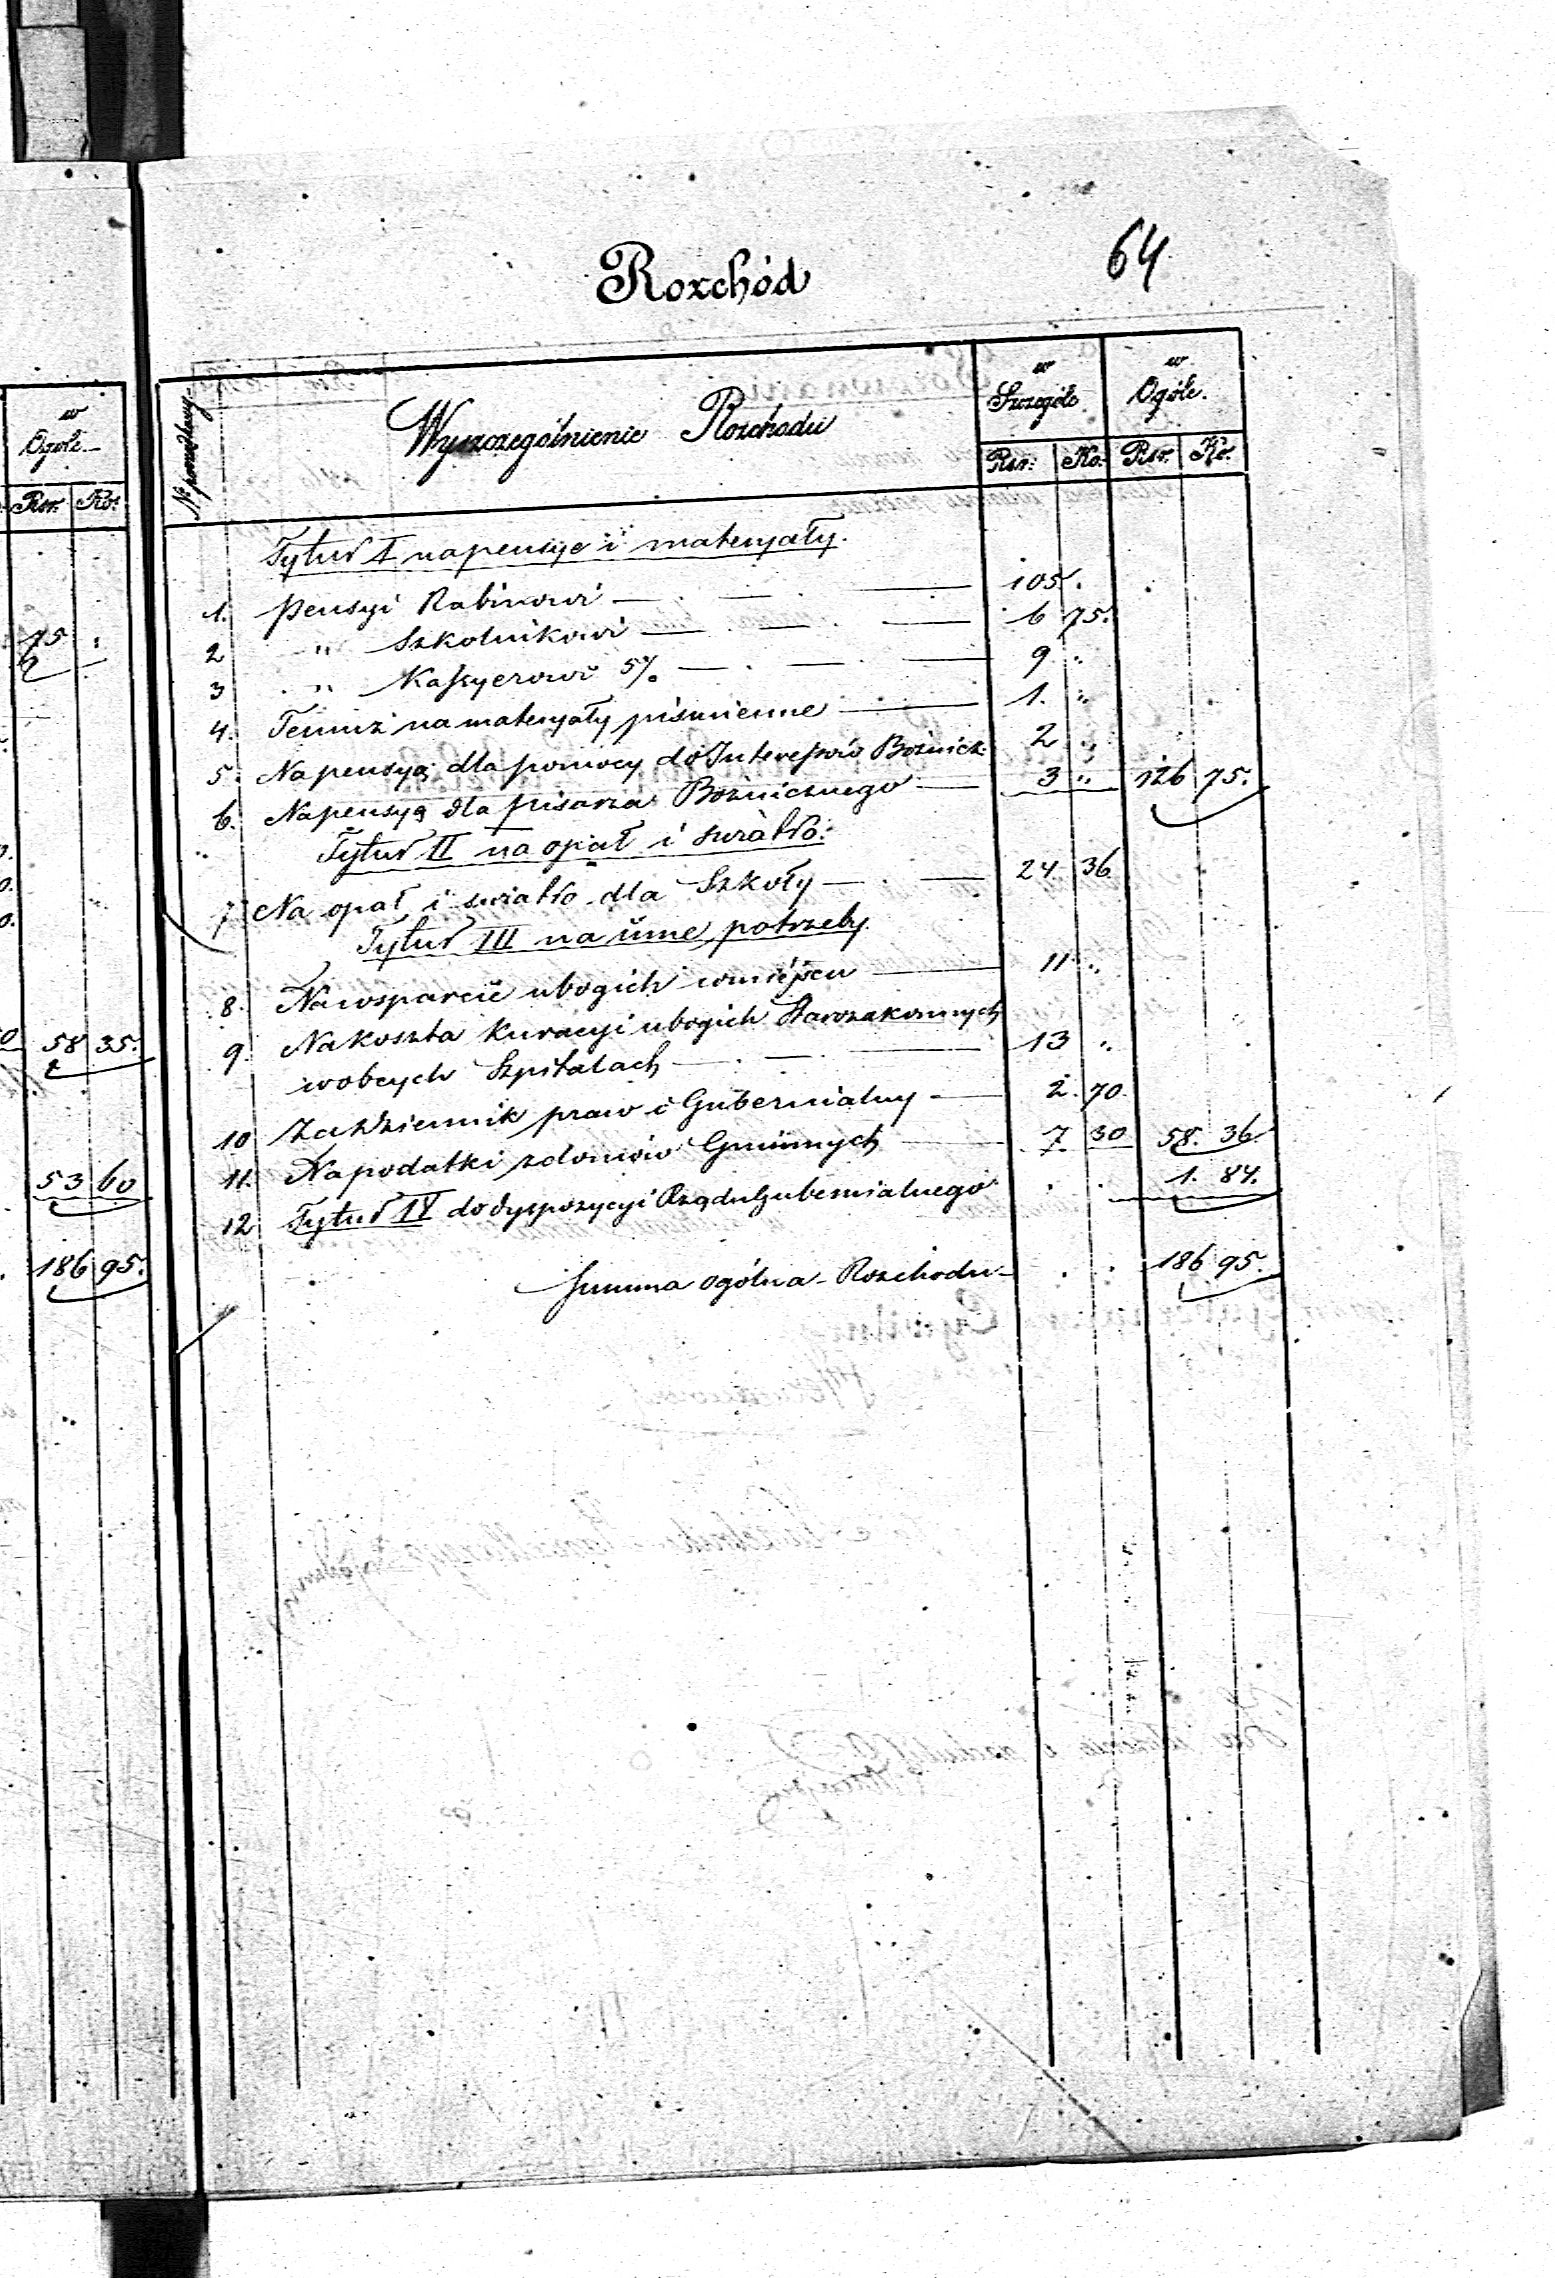 64
Rozchód
w Ogóle.
Rsr. Ko:
75
58 35.
53 60
186 95.
№ porządkowy
Wyszczególnienie Rozchodu
w Szczególe
w Ogóle.
Rsr: Ko: Rsr. Ko.
Tytuł I na pensye i materyały.
1. Pensyi Rabinowi 105.
2 " Szkolnikowi 6 75.
3 " Kassyerowi 5% 9 "
4. Temuż na materyały piśmienne 1. "
5. Na pensyą dla pomocy do Interessów Bożnicz: 2 "
6. Na pensyą dla pisarza Bożnicznego 3 " 126 75.
Tytuł II na opał i światło:
7 Na opał i światło dla Szkoły 24 36
Tytuł III na inne potrzeby
8. Na wsparcie ubogich w miejscu 11 "
9. Na koszta kuracyi ubogich Starozakonnych
w obcych Szpitalach 13 "
10 Za Dziennik praw i Gubernialny 2. 70.
11. Na podatki z domów Gminnych 7. 30 58. 36.
12 Tytuł IV do dyspozycyi Rządu Gubernialnego 1. 84.
Summa ogólna Rozchodu 186 95.